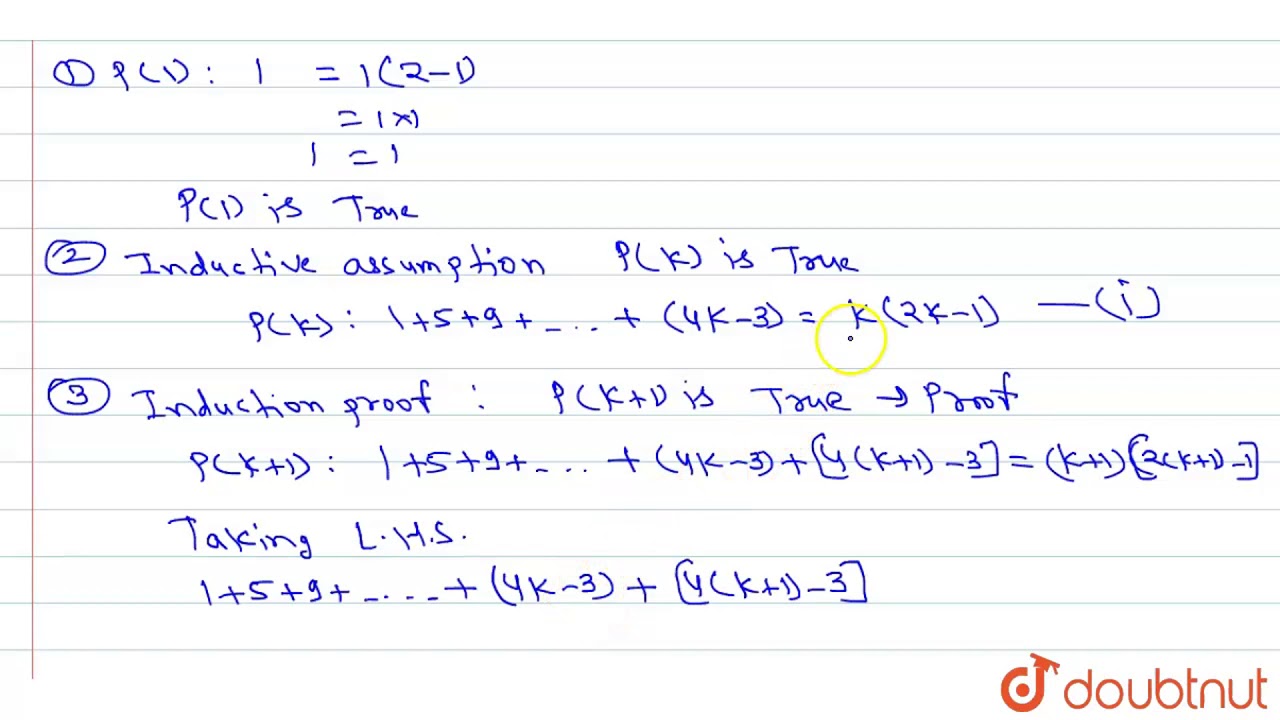 ① P(1): 1 = 1(2-1)
= 1×1
1 = 1
P(1) is True
② Inductive assumption P(k) is True
P(k): 1+5+9+-... + (4k-3) = k(2k-1) —(i)
③ Induction proof : P(k+1) is True → Proof
P(k+1): 1+5+9+-... + (4k-3)+[4(k+1)-3] = (k+1)[2(k+1)-1]
Taking L.H.S.
1+5+9+-...-+(4k-3)+[4(k+1)-3]
doubtnut